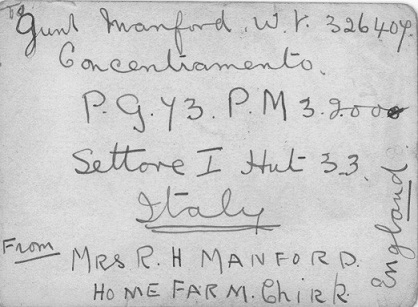 To Gunr Manford. W. R. 326404.
Concentramento.
P. G. 73. P. M 3.200
Settore I Hut 33.
Italy
From MRS R. H MANFORD.
HOME FARM. Chirk.
England